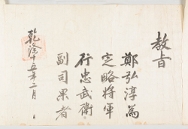 教旨
鄭弘淳為
定略將軍
行忠武衛
副司果者
乾隆十五年二月 日